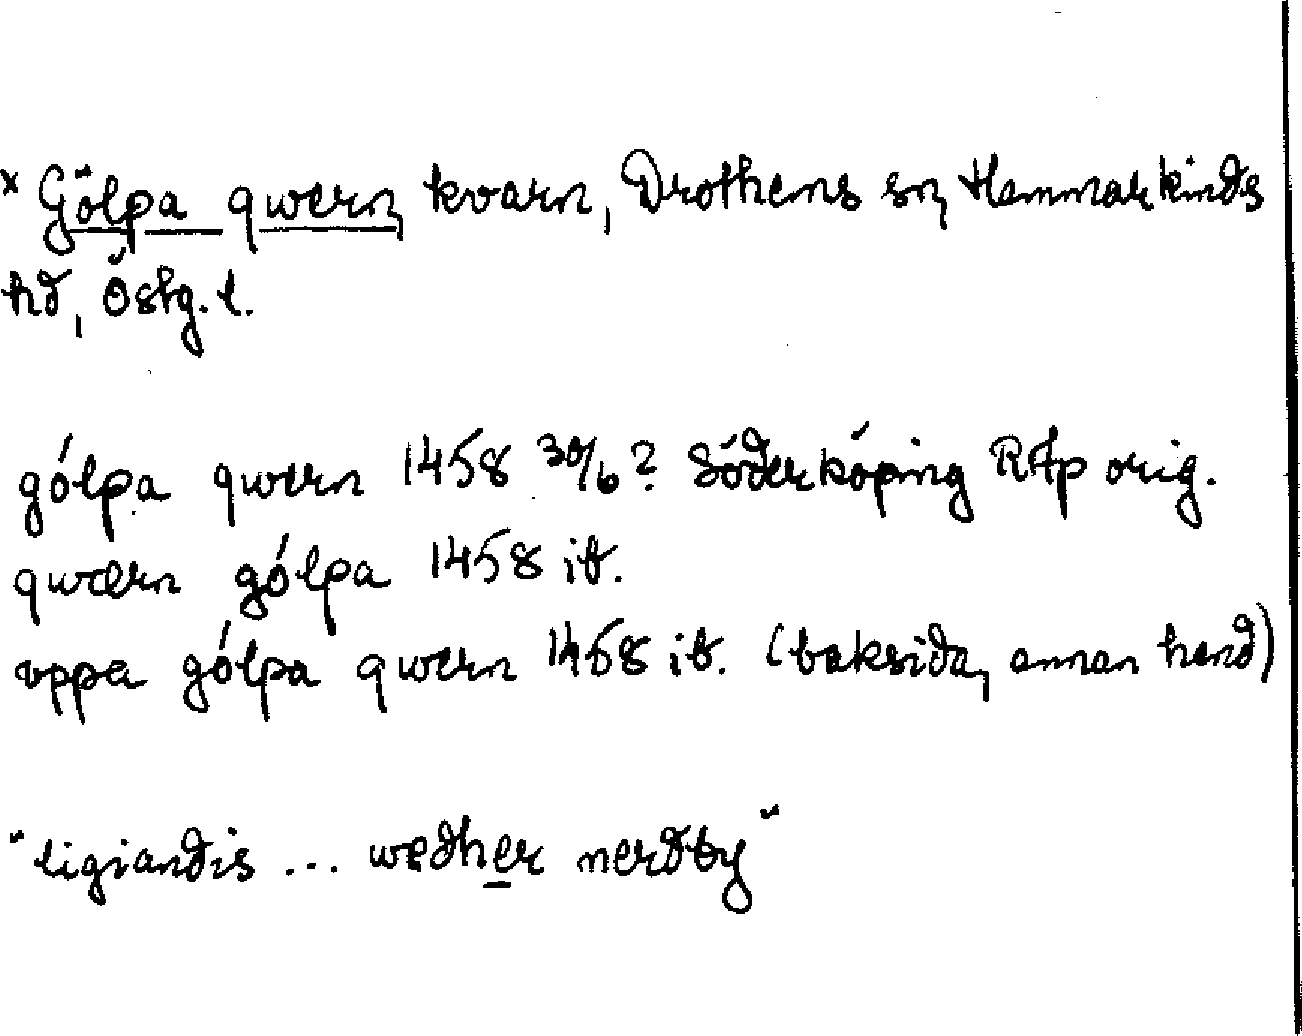 × Gölpa qwern, kvarn, Drothems sn, Hammarkinds
hd, Östg. l.
gólpa qwern 1458 30/6? Söderköping RAp orig.
qwærn gólpa 1458 ib.
vppa gólpa qwern 1458 ib. (baksida, annan hand)
"ligiandis ... wedher nerdby"